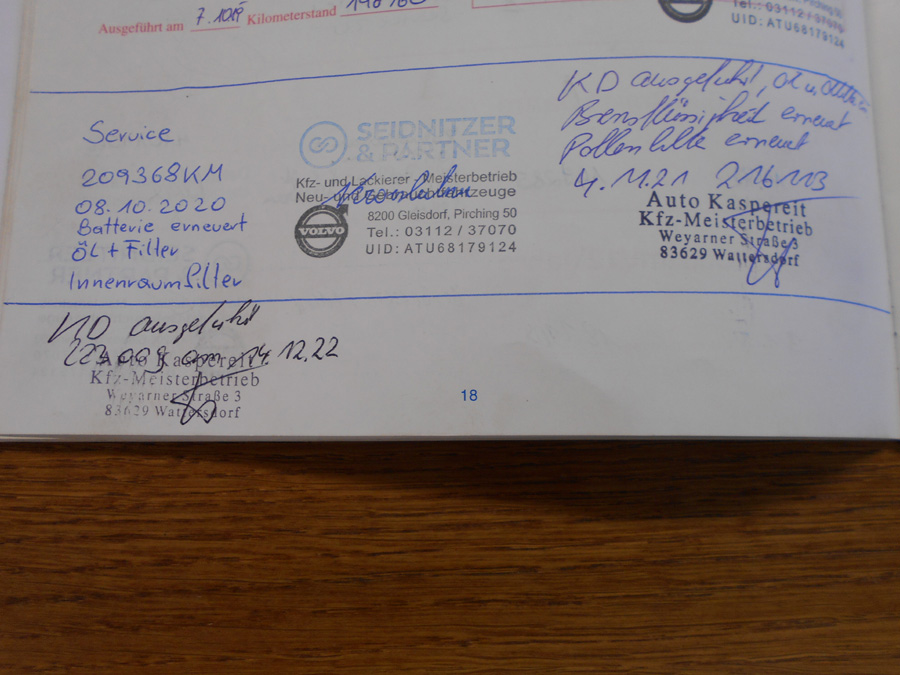 Ausgeführt am 7.10 Kilometerstand
Tel.: 03112 / 37070
UID: ATU68179124
Service
209368KM
08.10.2020
Batterie erneuert
ÖL + Filter
Innenraumfilter
SEIDNITZER
& PARTNER
Kfz- und Lackierer - Meisterbetrieb
Neu- und
VOLVO
8200 Gleisdorf, Pirching 50
Tel.: 03112 / 37070
UID: ATU68179124
KD ausgeführt, Öl u.
Bremsflüssigkeit erneuert
Pollenfilter erneuert
4.11.21 216113
Auto Kaspereit
Kfz-Meisterbetrieb
Weyarner Straße 3
83629 Wattersdorf
KD ausgeführt
am 14.12.22
Auto Kaspereit
Kfz-Meisterbetrieb
Weyarner Straße 3
83629 Wattersdorf
18